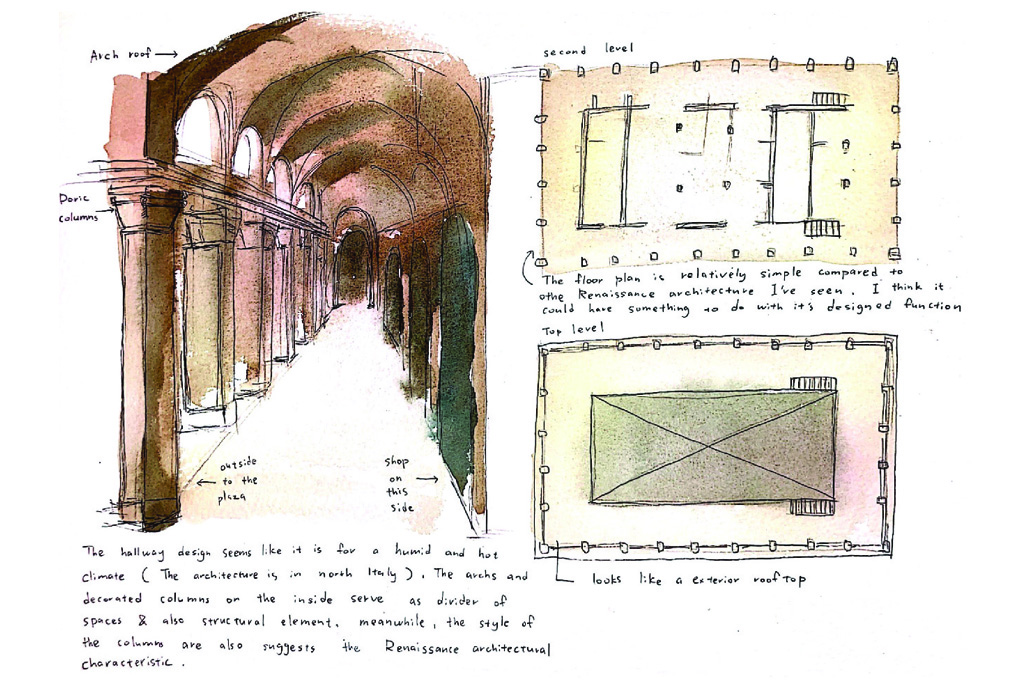 Arch roof →
Doric
columns
outside
← to the
plaza
shop
on →
this
side
The hallway design seems like it is for a humid and hot
climate ( The architecture is in north Italy ) . The archs and
decorated columns on the inside serve as divider of
spaces & also structural element. meanwhile , the style of
the columns are also suggests the Renaissance architectural
characteristic .
second level
The floor plan is relatively simple compared to
othe Renaissance architecture I've seen . I think it
could have something to do with it's designed function
Top level
looks like a exterior roof top